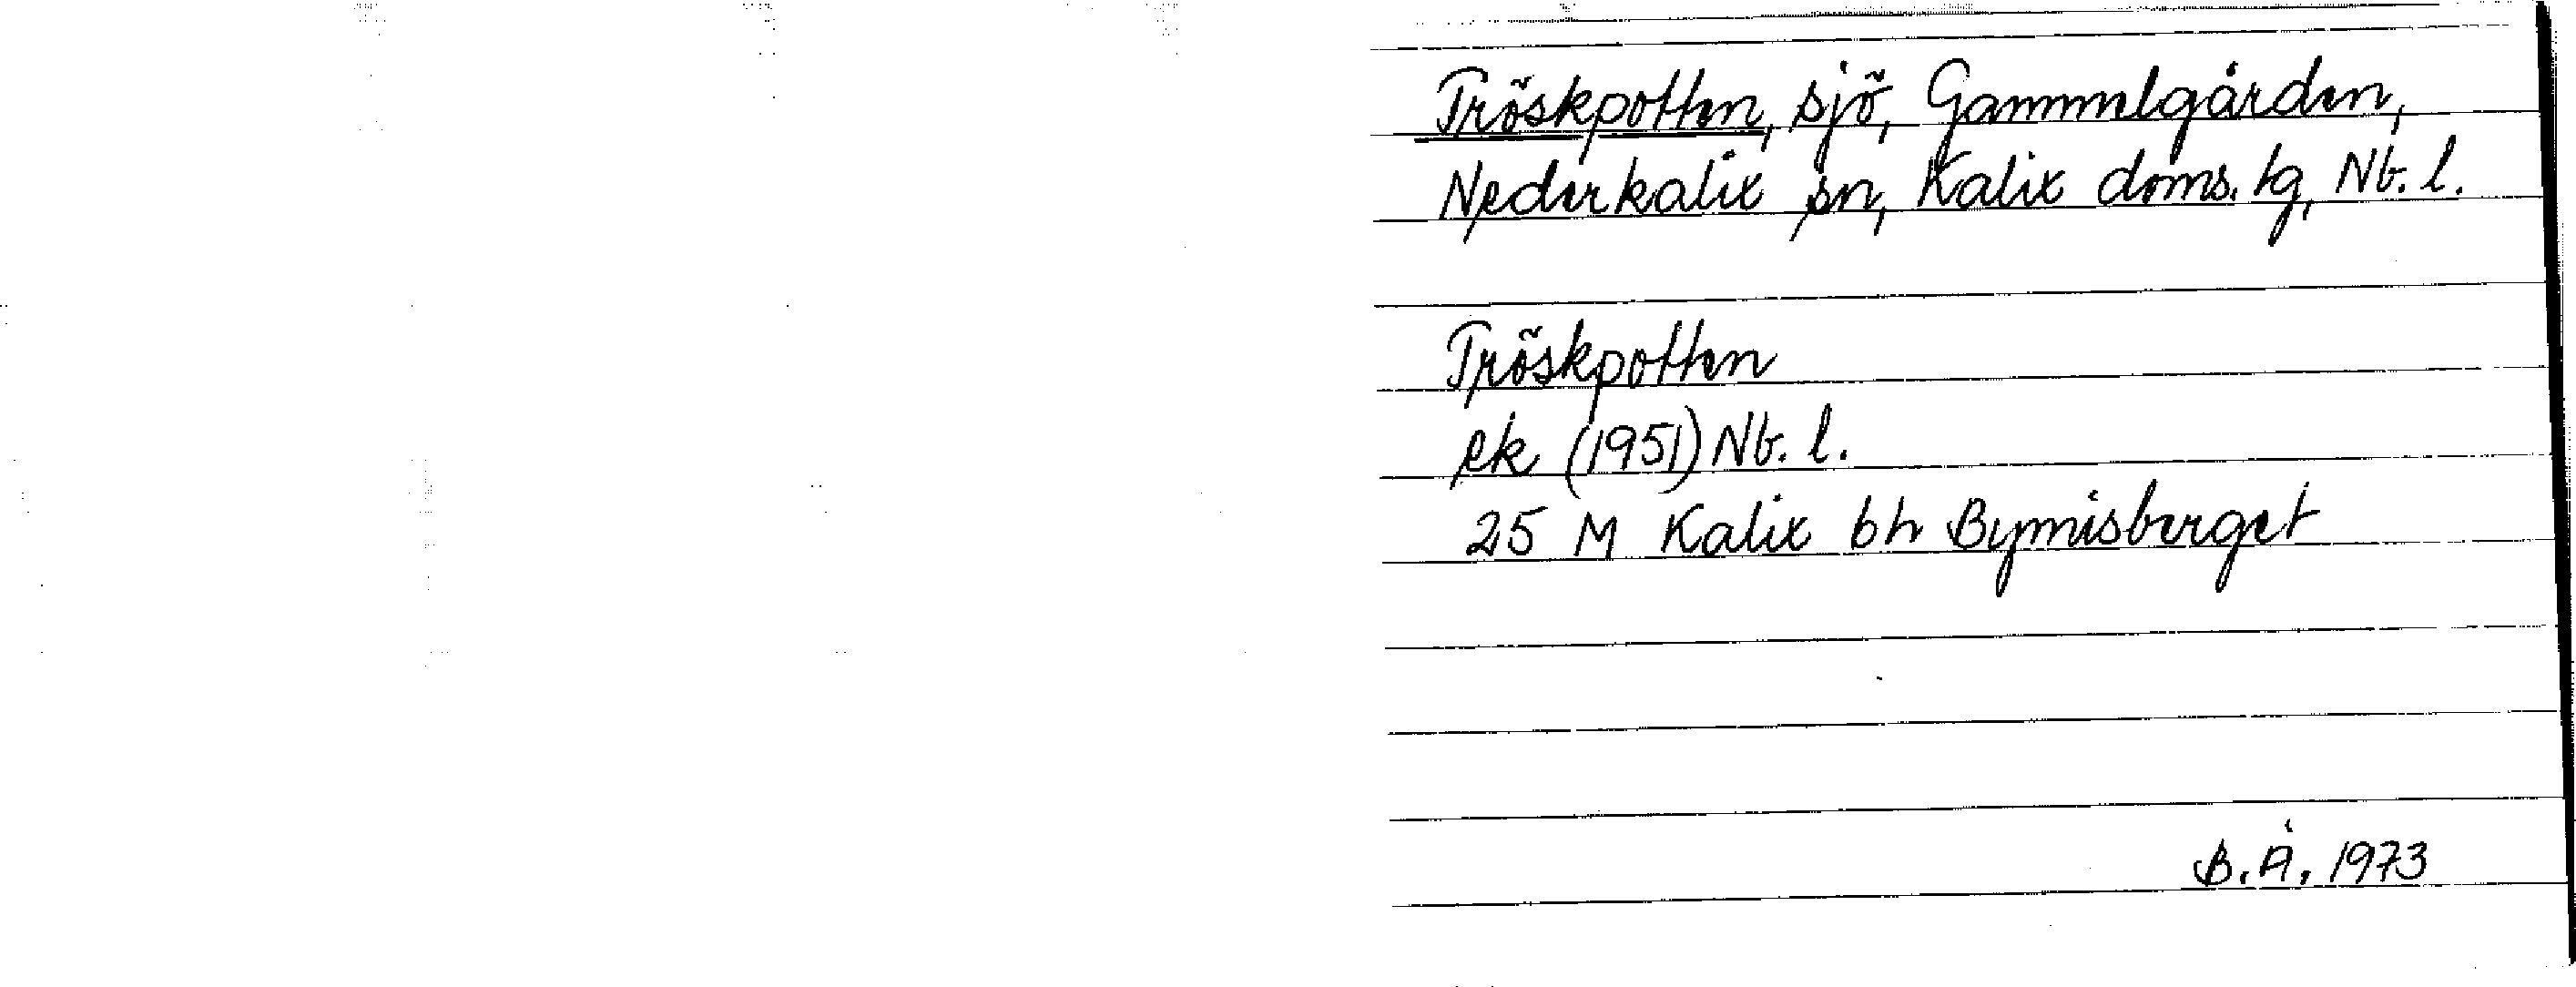 Tröskpotten, sjö, Gammelgården,
Nederkalix sn, Kalix doms. lg, Nb. l.
Tröskpotten
ek (1951) Nb. l.
25 M Kalix bh Bymisberget
B.Å. 1973